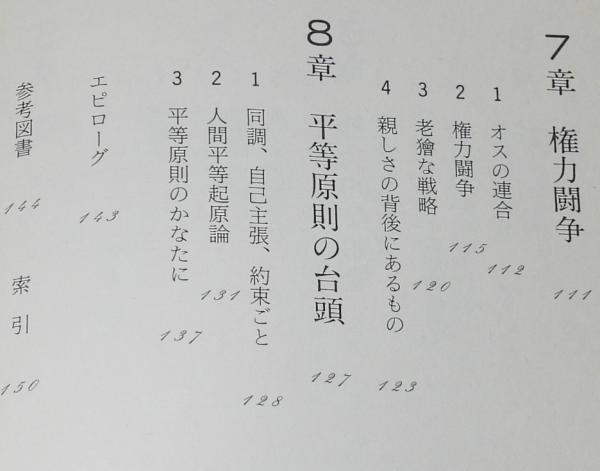 7章 権力闘争 111
1 オスの連合 112
2 権力闘争 115
3 老獪な戦略 120
4 親しさの背後にあるもの 123
8章 平等原則の台頭 127
1 同調、自己主張、約束ごと 128
2 人間平等起原論 131
3 平等原則のかなたに 137
エピローグ 143
参考図書 144
索引 150